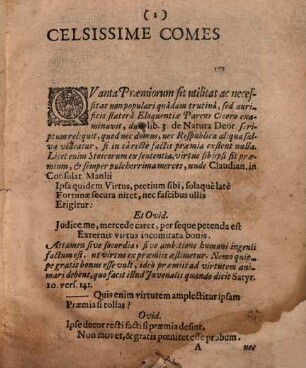 ( 1 )
CELSISSIME COMES
QVanta Præmiorum sit utilitas ac neces-
sitas non populari quâdam trutinâ, sed auri-
ficis staterâ Eloquentiæ Parens Cicero exa-
minavit, dum lib. 3. de Natura Deor. scri-
ptum reliquit, quod nec domus, nec Respublica aliqua sal-
va videatur, si in eâ rectè factis præmia existent nulla.
Licet enim Stoicorum ex sententia, virtus sibi ipsi sit præ-
mium, & semper pulcherrima merces, unde Claudian. in
Consolat Manlii
Ipsa quidem Virtus, pretium sibi, solaq́ue latè
Fortunæ secura nitet, nec fascibus ullis
Erigitur:
Et Ovid.
Judice me, mercede caret, per seque petenda est
Externis virtus incomitata bonis.
Attamen sive socordia; sive ambitione humani ingenii
factum est, ut virtus ex præmiis æstimetur. Nemo quip-
pe gratis bonus esse vult, ideò præmiis ad virtutem ani-
mari debent, quo facit illud Juvenalis quando dicit Satyr.
10. vers. 141.
—— Quis enim virtutem amplectitur ipsam
Præmia si tollas?
Ovid.
Ipse decor recti facti si præmia desint,
Non movet, & gratis pœnitet esse probum.
A nec